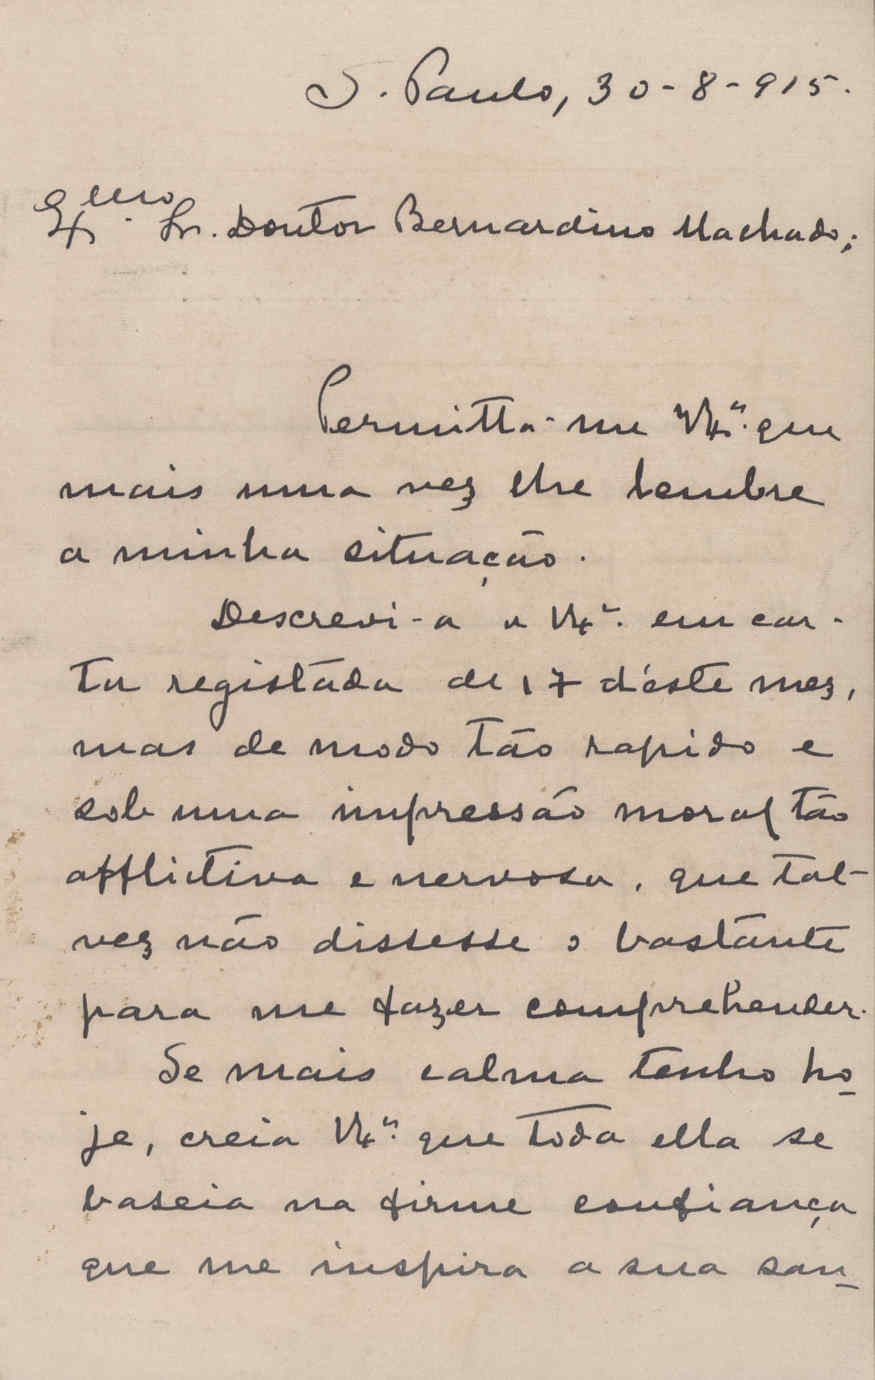 S. Paulo, 30-8-915.
Exmo. Sr. Doutor Bernardino Machado;
Permitta-me V. Exa. que
mais uma vez lhe lembre
a minha situação.
Descrevi-a a V. Exa. em car-
ta registada de 17 d'éste mez,
mas de modo tão rapido e
sob uma impressão moral tão
afflictiva e nervosa, que tal-
vez não dissesse o bastante
para me fazer comprehender.
Se mais calma tenho ho-
je, creia V. Exa. que toda ella se
baseia na firme confiança
que me inspira a sua san-